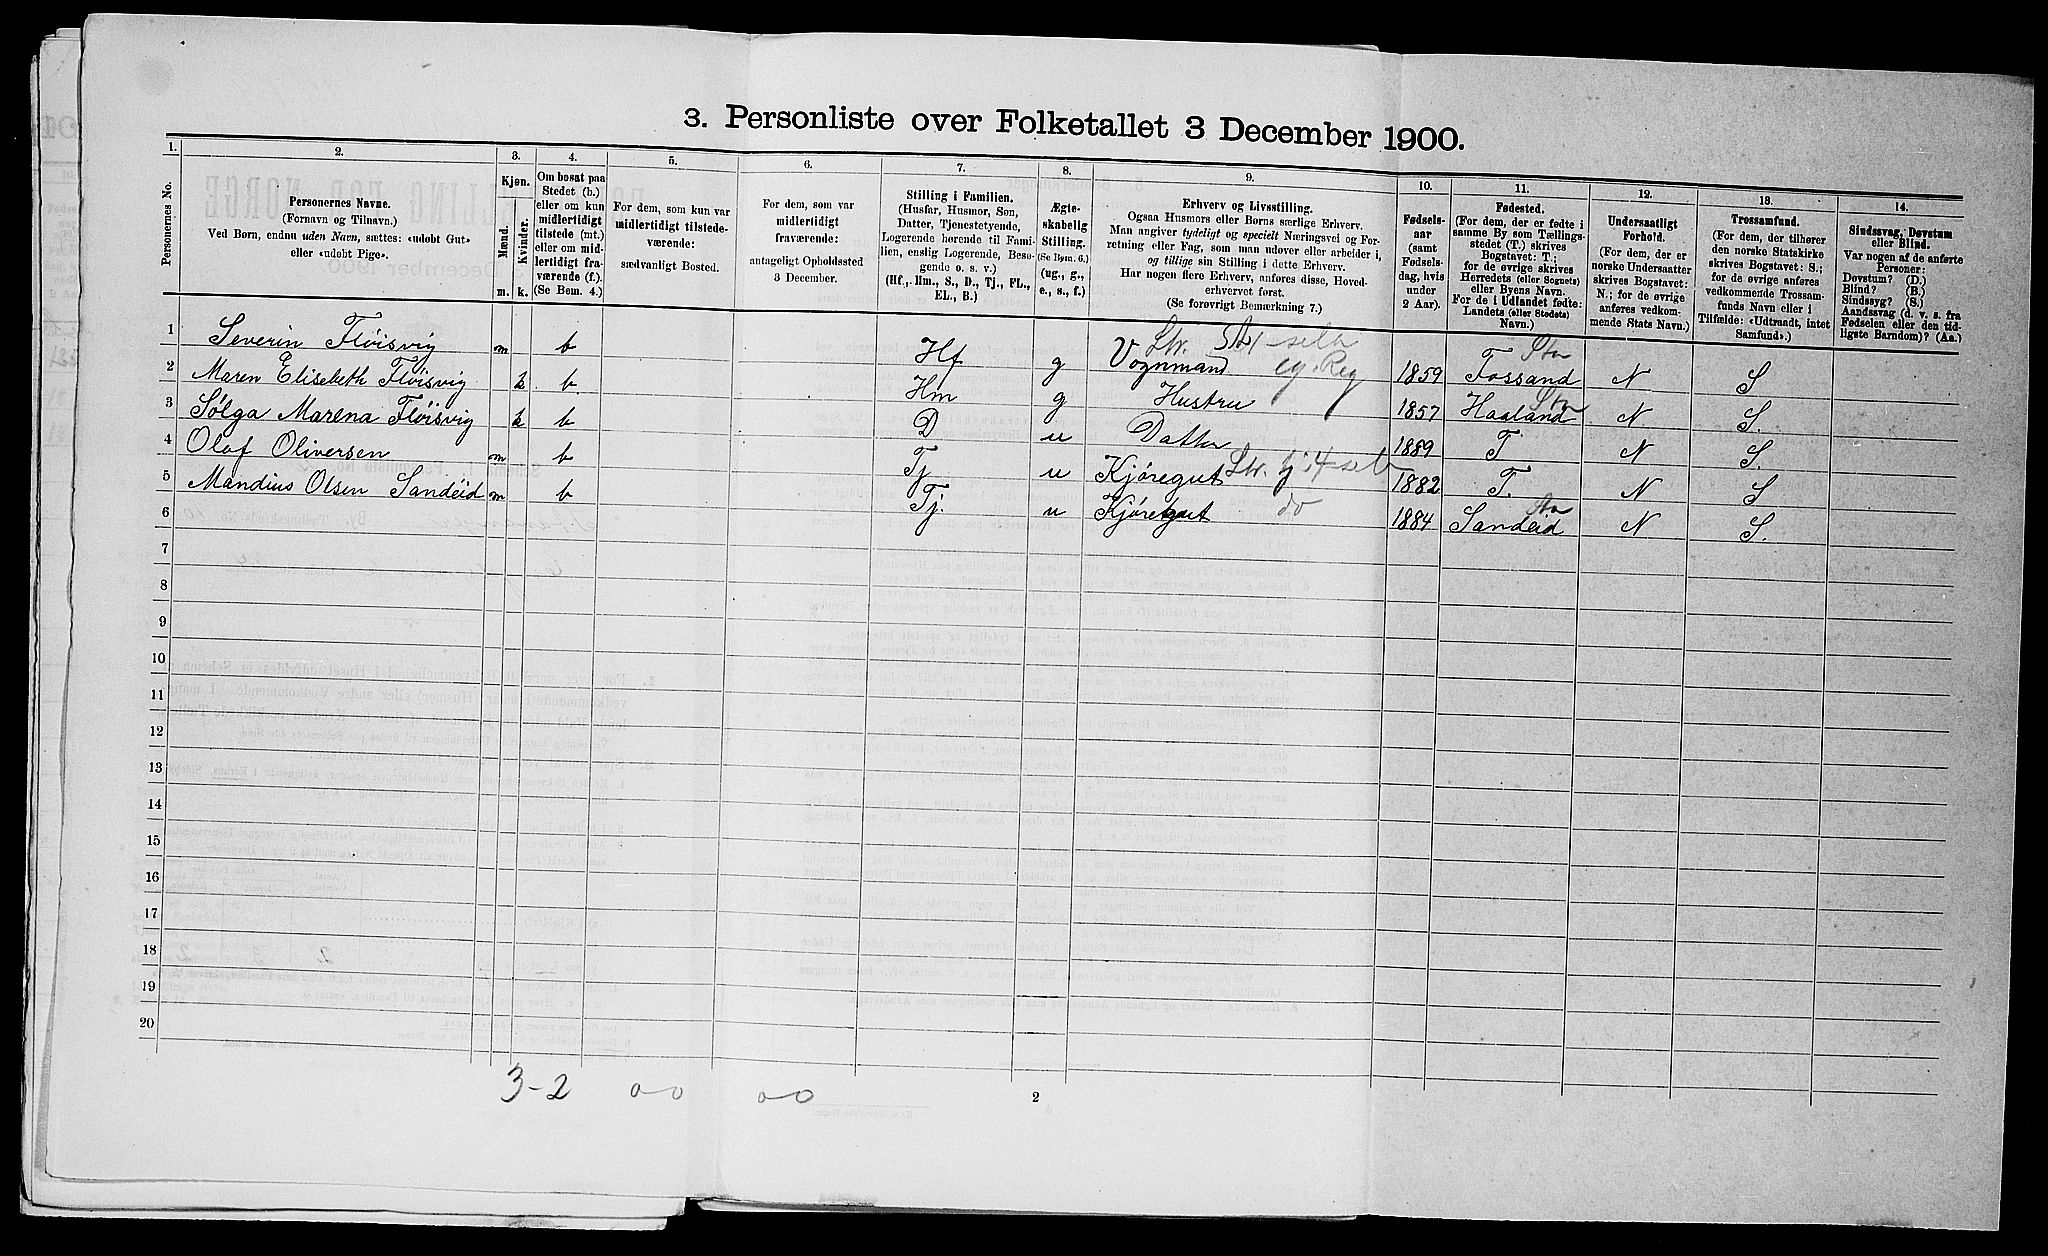 3. Personliste over Folketallet 3 December 1900.
1. 2. 3. 4. 5. 6. 7. 8. 9. 10. 11. 12. 13. 14.
Personernes No.
Personernes Navne.
(Fornavn og Tilnavn.)
Ved Børn, endnu uden Navn, sættes: «udøbt Gut»
eller «udøbt Pige».
Kjøn.
Mænd.
Kvinder.
m. k.
Om bosat paa
Stedet (b.)
eller om kun
midlertidigt
tilstede (mt.)
eller om mid-
lertidigt fra-
værende (f.).
(Se Bem. 4.)
For dem, som kun var
midlertidigt tilstede-
værende:
sædvanligt Bosted.
For dem, som var
midlertidigt
fraværende:
antageligt Opholdssted
3 December.
Stilling i Familien.
(Husfar, Husmor, Søn,
Datter, Tjenestetyende,
Logerende hørende til Fami-
lien, enslig Logerende, Besø-
gende o. s. v.)
(Hf., Hm., S., D., Tj., FL.,
EL., B.)
Ægte-
skabelig
Stilling.
(Se Bem. 6.)
(ug., g.,
e., s., f.)
Erhverv og Livsstilling.
Ogsaa Husmors eller Børns særlige Erhverv.
Man angiver tydeligt og specielt Næringsvei og For-
retning eller Fag, som man udøver eller arbeider i,
og tillige sin Stilling i dette Erhverv.
Har nogen flere Erhverv, anføres disse, Hoved-
erhvervet først.
(Se forøvrigt Bemærkning 7.)
Fødsels-
aar
(samt
Fødsels-
dag, hvis
under
2 Aar).
Fødested.
(For dem, der er fødte i
samme By som Tællings-
stedet (T.) skrives
Bogstavet: T.;
for de øvrige skrives
Herredets (eller Sognets)
eller Byens Navn.
For de i Udlandet fødte:
Landets (eller Stedets)
Navn.)
Undersaatligt
Forhold.
(For dem, der er
norske Undersaatter
skrives Bogstavet:
N.; for de øvrige
anføres vedkom-
mende Stats Navn.)
Trossamfund.
(For dem, der tilhører
den norske Statskirke
skrives Bogstavet: S.;
for de øvrige anføres
vedkommende Trossam-
funds Navn eller i
Tilfælde: «Udtraadt, intet
Samfund».)
Sindssvag, Døvstum
eller Blind.
Var nogen af de anførte
Personer:
Døvstum? (D.)
Blind? (B.)
Sindssyg? (S.)
Aandssvag (d. v. s. fra
Fødselen eller den tid-
ligste Barndom)? (Aa.)
1 Severin Fløisvig m b Hf g Vognmand 1859 Fossand N S
2 Maren Elisebeth Fløisvig k b Hm g Hustru 1857 Haaland N S.
3 Sølga Marena Fløisvig k b D u Datter 1889 T N S.
4 Olaf Oliversen m b Tj u Kjøregut 1882 T. N S
5 Mandius Olsen Sandeid m b Tj. u Kjøregut do 1884 Sandeid N S.
6
7
8
9
10
11
12
13
14
15
16
17
18
19
20
3-2 0 0 0 0
2